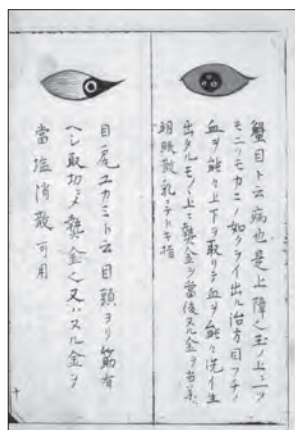 蟹目ト云病也是上障ㇸ玉ノ上ニ一ツ
モ二ツモカニノ如クライ出ル治方目フチノ
血ヲ能々上下ヲ取リテ血ヲ能々洗イ生
出タルモノヽ上ニ龔金ヲ當後又ル金ヲ當
明眼散ヲ乳ニテトキ指
目ノ尻ユカミト云目頭ヨリ筋有
ヘシ取切ニメ龔金ㇸ又ハスル金ヲ
當塩消散可用
十